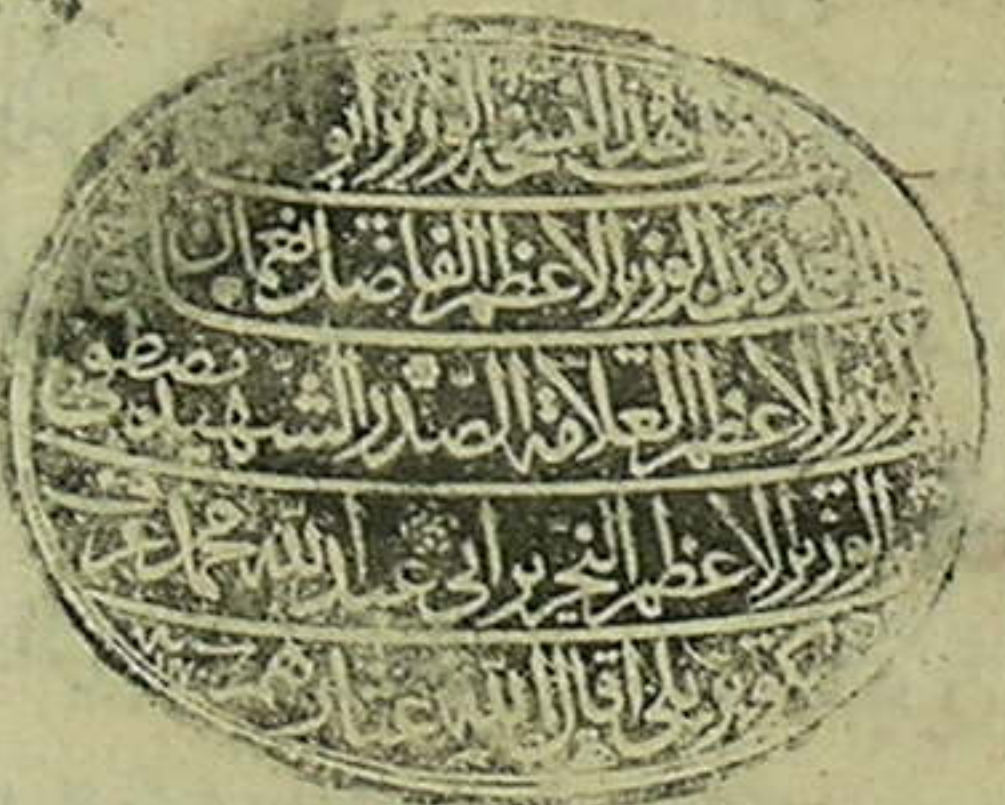 وقف هذه النسخة الوزير ابو
احمد بن الوزير الاعظم الفاضل نعمان
الوزير الاعظم العلامة الصدر الشهيد مصطفى
الوزير الاعظم النحرير ابي عبد الله محمد عرف
بكوپريلى اقال الله عثارهم